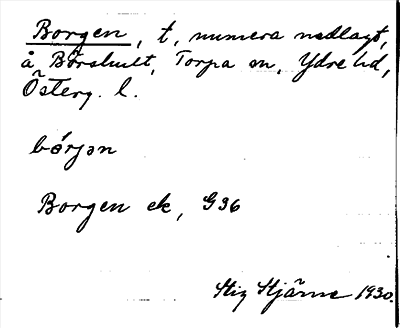 Borgen, t, numera nedlagt,
å Börshult, Torpa sn, Ydre hd,
Österg. l.
bórjən
Borgen ek, G36
Stig Stjärne 1930.